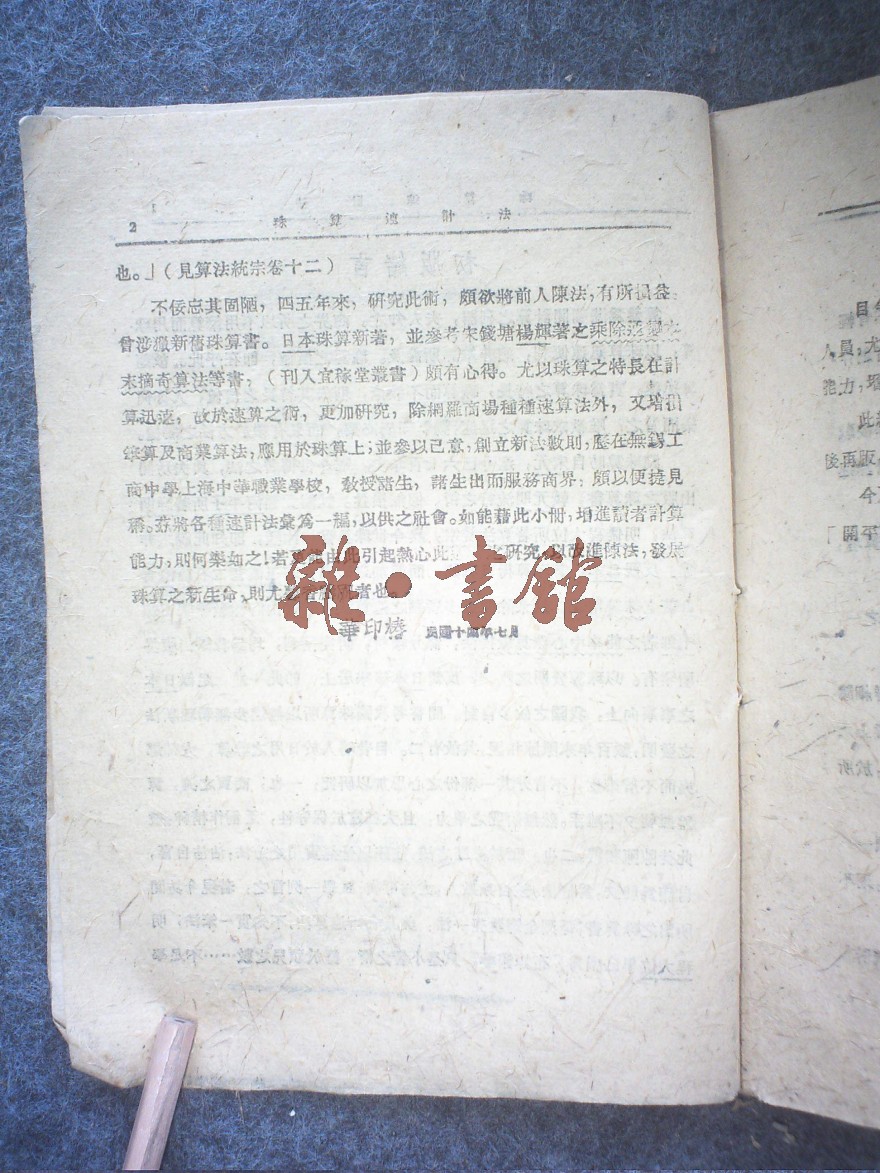 2
珠算速計法
也。」(見算法統宗卷十二)
不佞忘其固陋,四五年來,研究此術,頗欲將前人陳法,有所損益
曾涉獵新舊珠算書。日本珠算新著,並參考宋錢塘楊輝著之乘除通變之
末摘奇算法等書,(刊入宜稼堂叢書)頗有心得。尤以珠算之特長在計
算迅速,故於速算之術,更加研究,除網羅商場種種速算法外,又增損
筆算及商業算法,應用於珠算上;並參以己意,創立新法數則,歷在無錫工
商中學上海中華職業學校,敎授諸生,諸生出而服務商界;頗以便捷見
稱。茲將各種速計法彙爲一編,以供之社會。如能藉此小冊,增進讀者計算
能力,則何樂如之!若更能由此引起熱心此 之研究,以改進陳法,發展
珠算之新生命,則尤 者也。
華印椿 民國十四年七月
雜·書館
目今
人員,尤
能力,增
此
後再版
今
「開平